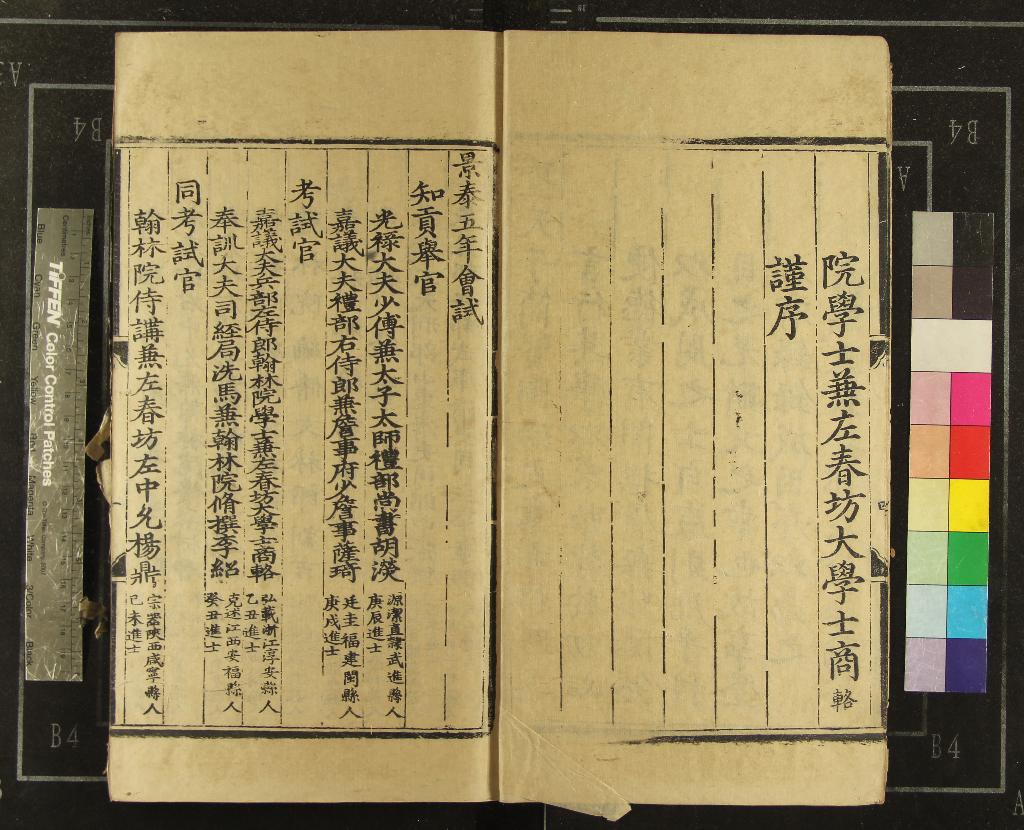 院學士蕪左春坊大學士商輅
謹序
景泰五年會試
知貢舉官
光禄大夫少傅蕪太子太師禮部尚書胡濙 源潔直隷武進縣人 庚辰進士
嘉議大夫禮部右侍郎蕪詹事府少詹事薩琦 廷圭福建閩縣人 庚戌進士
考試官
嘉議大夫兵部左侍郎翰林院學士蕪左春坊大學士商輅 弘載浙江淳安縣人 乙丑進士
奉訓大夫司經局洗馬蕪翰林院脩撰李紹 克述江西安福縣人 癸丑進士
同考試官
翰林院侍講蕪左春坊左中允楊鼎 宗器陝西咸寧縣人 己未進士
TIFFEN Color Control Patches
Blue
Cyan
Green
Yellow
Red
Magenta
White
3/Color
Black
Centimetres
B4
B4
B4
B4
A3
A